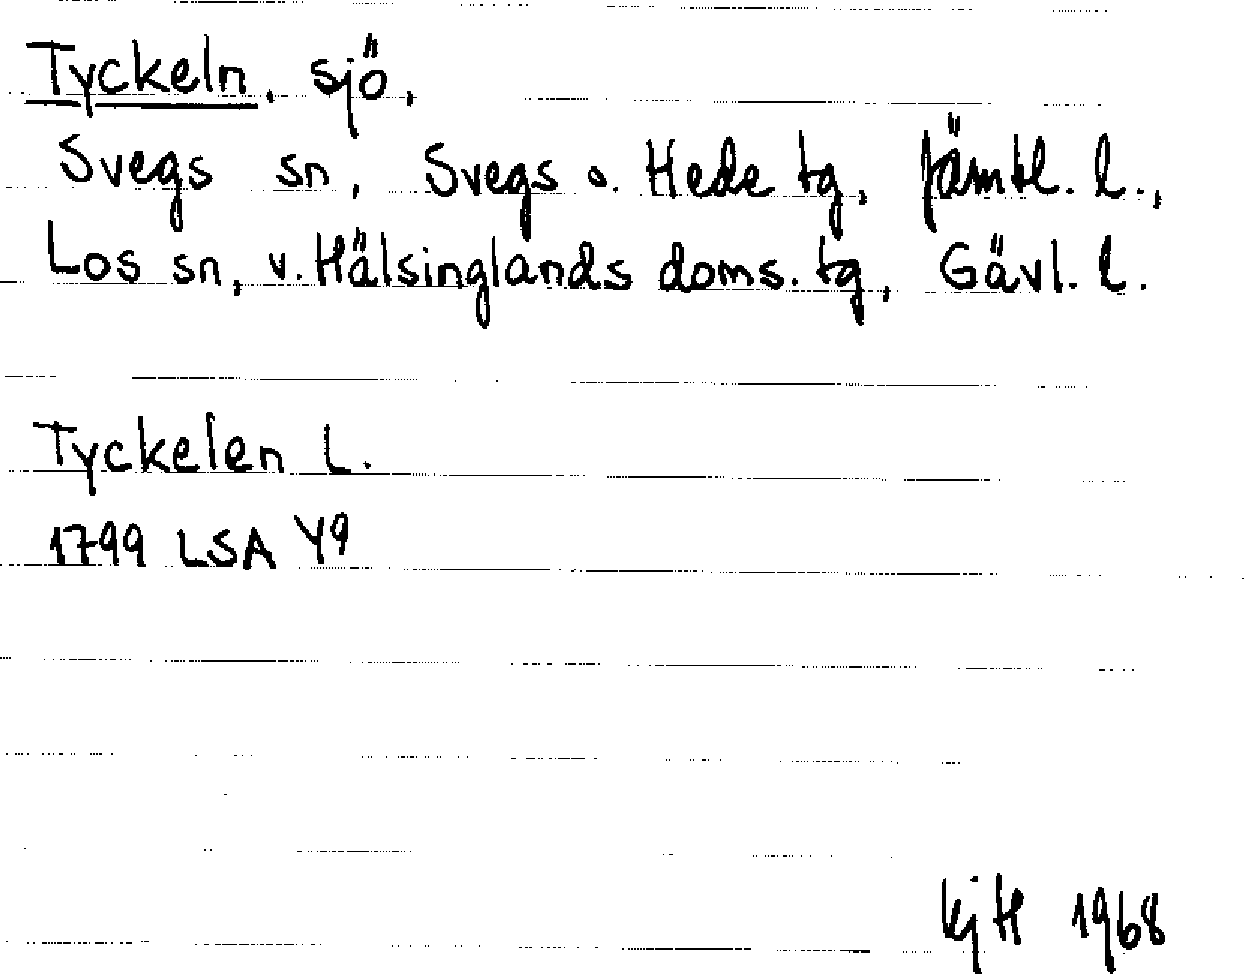 Tyckeln, sjö,
Svegs sn, Svegs o. Hede tg, Jämtl. l.,
Los sn, v. Hälsinglands doms. tg, Gävl. l.
Tyckelen L.
1799 LSA Y9
kjH 1968